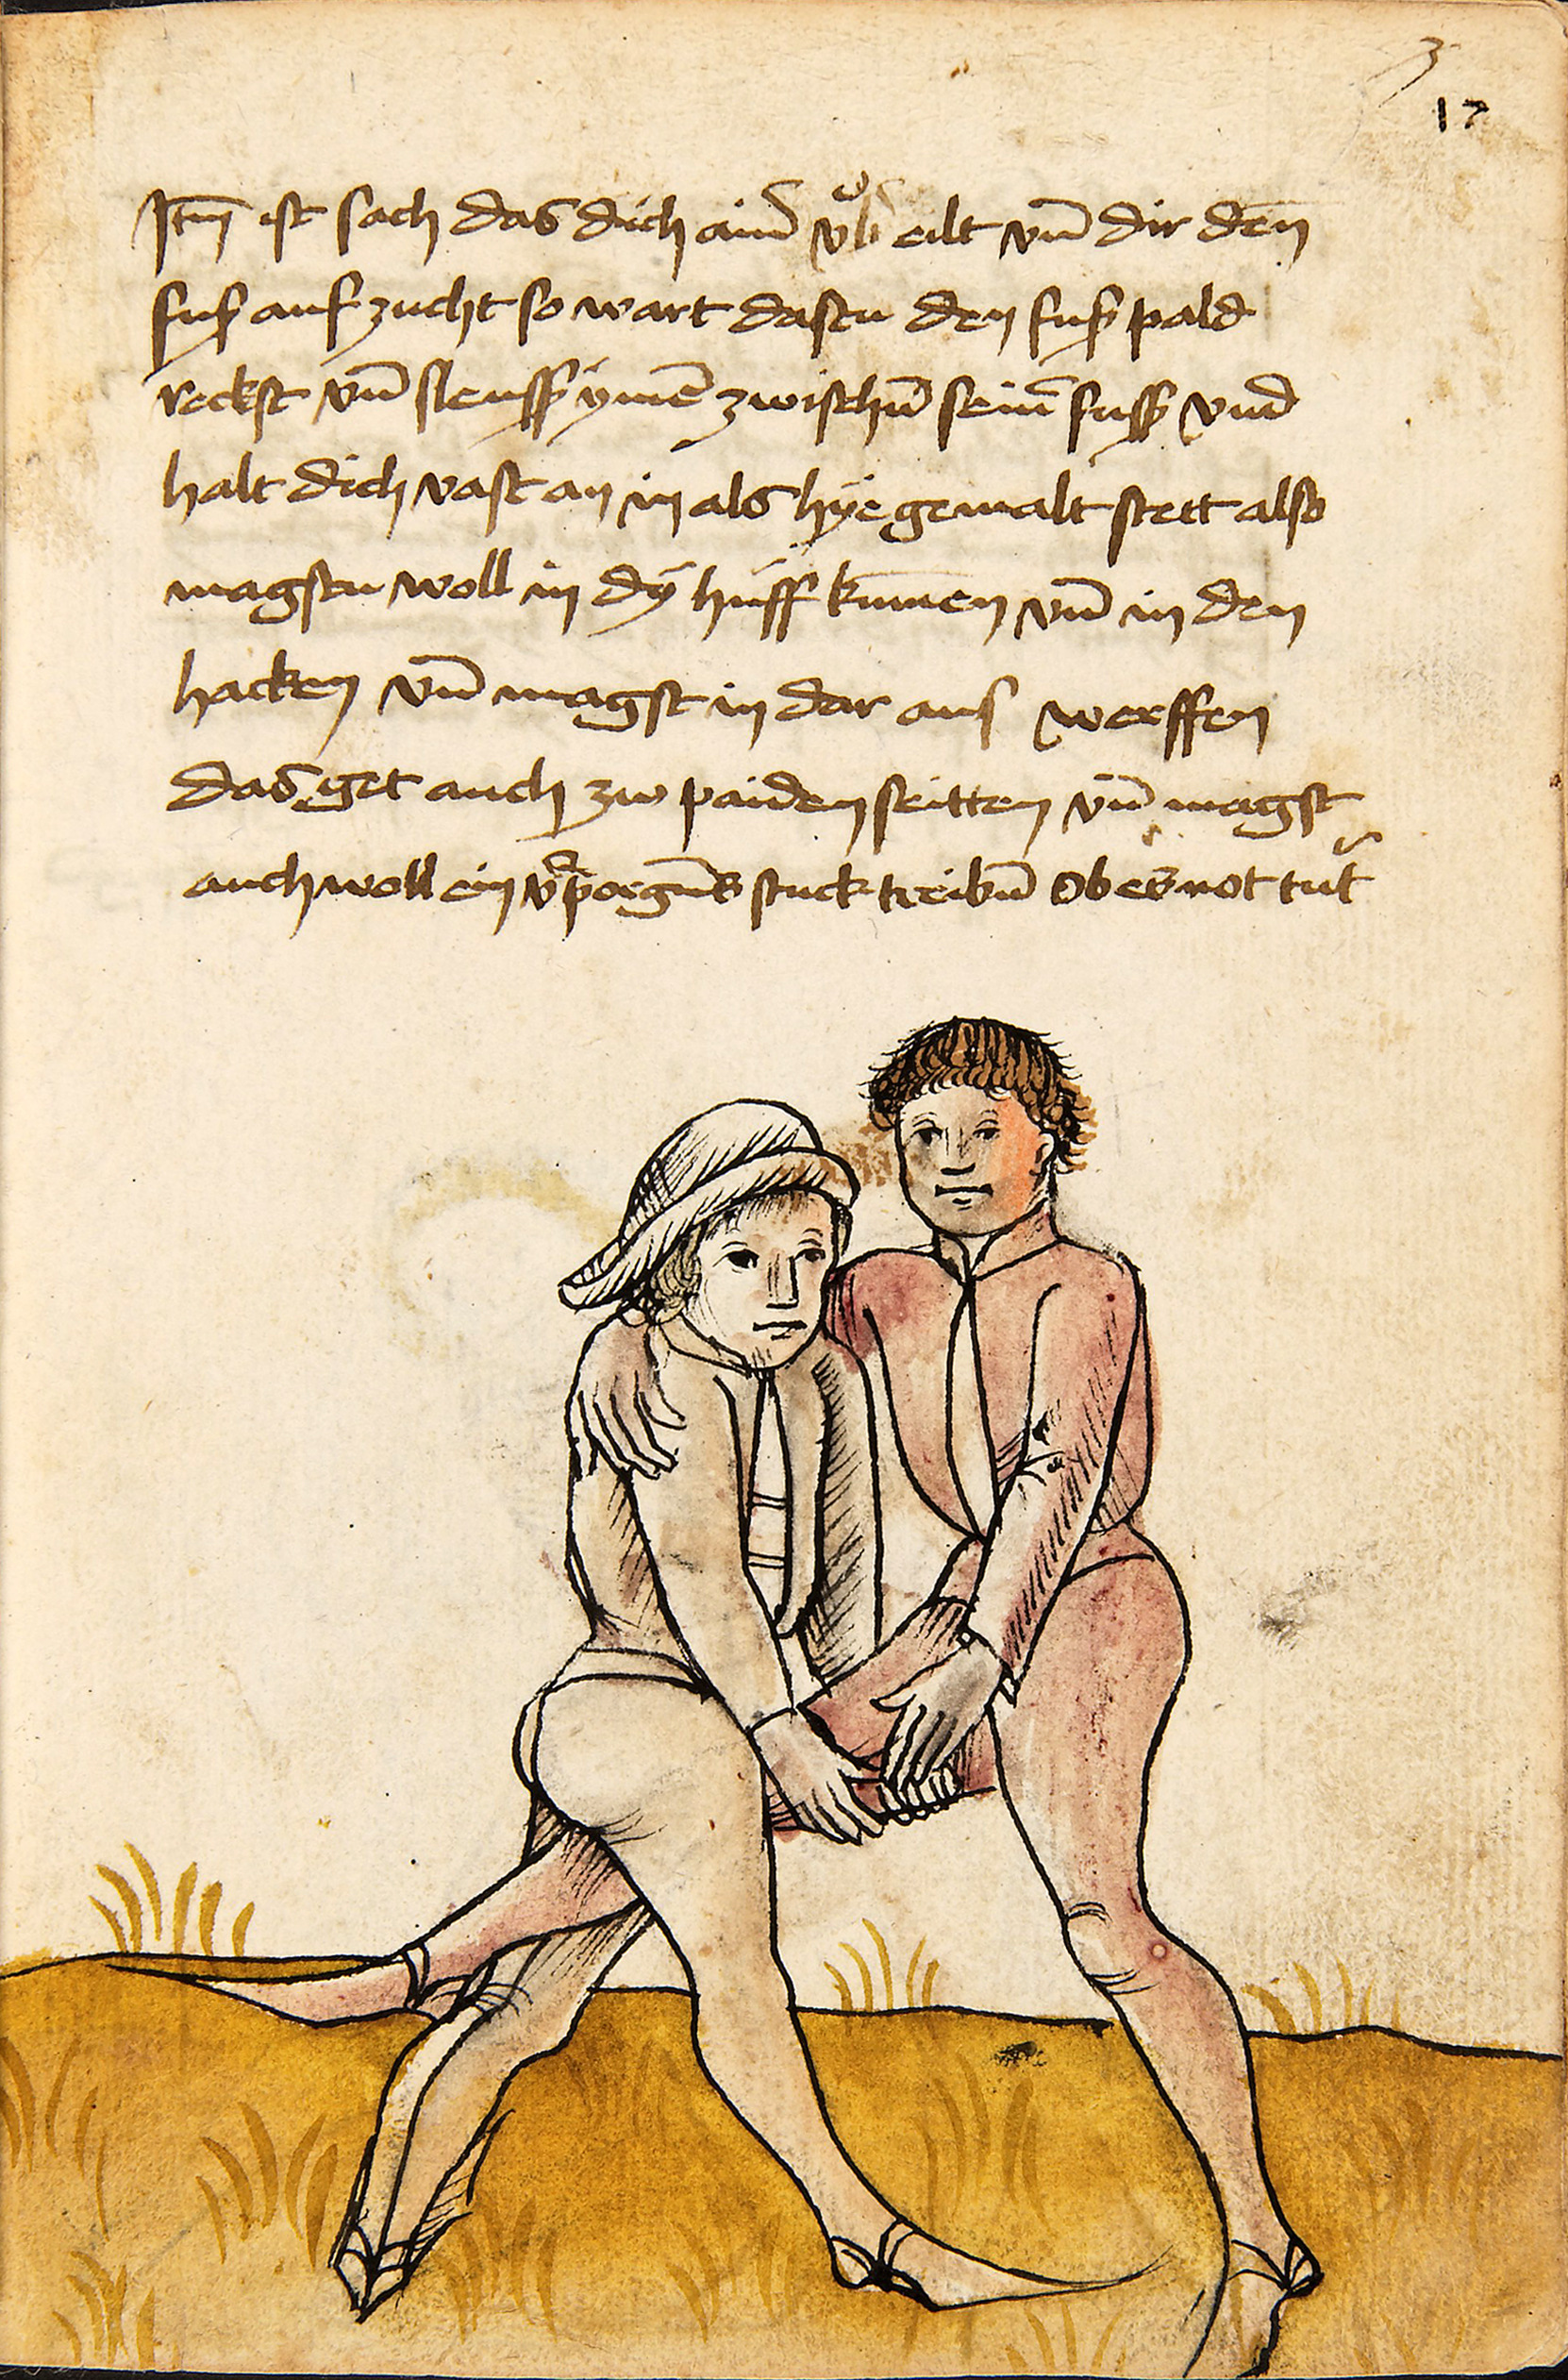 3
17
Itm̄ ist sach das dich ainȓ vb̊ eilt vn̄ dir den̄
fuß auf zucht so wart dastu den fuß pald
reckst vn̄ sleuss ymē zwischn̄ sein̄ fuss vnd
halt dich vast an in als hye gemalt stett also
magstu woll in dÿ huff kumen vn̄ in den
hacken vn̄ magst in dar aus werffen
das get auch zw paiden seitten vn̄ magst
auch woll ein stuck treibn̄ Ob es not tut